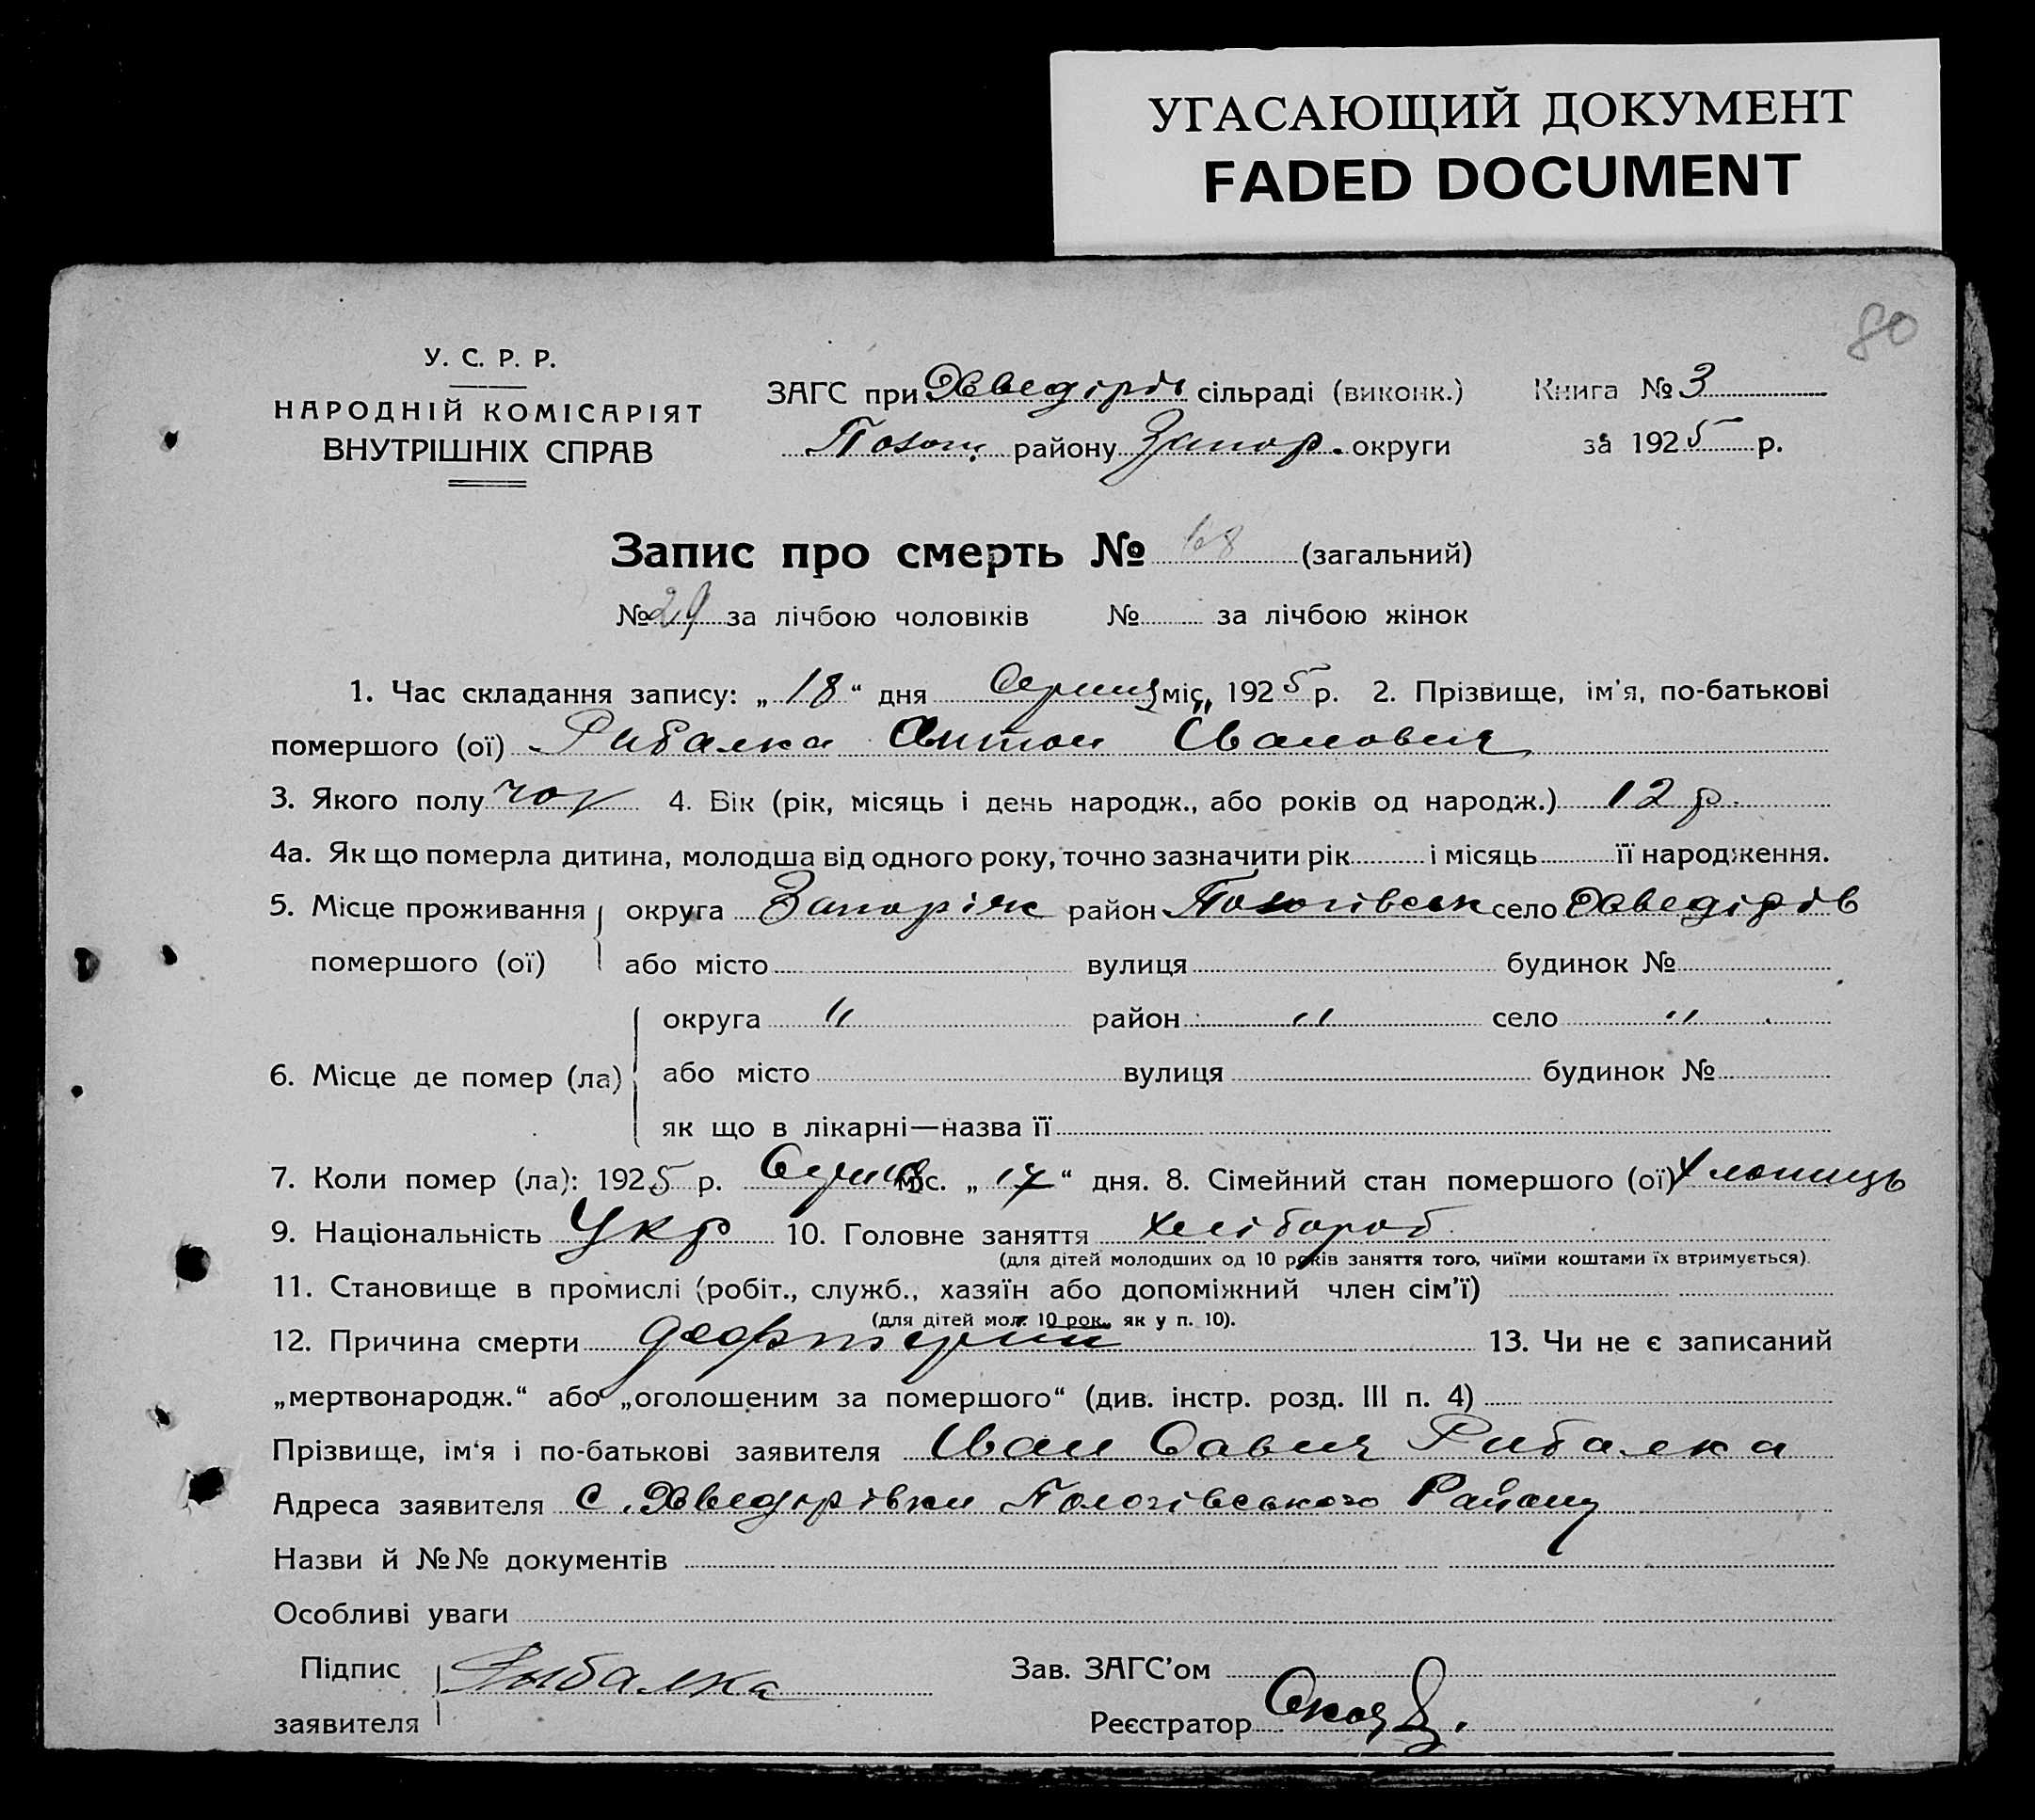 УГАСАЮЩИЙ ДОКУМЕНТ
FADED DOCUMENT
80
У. С. Р. Р.
НАРОДНІЙ КОМІСАРІЯТ
ВНУТРІШНІХ СПРАВ
ЗАГС при Хведірів сільраді (виконк.)
Полог. району Запор. округи
Книга № 3
за 1925 р.
Запис про смерть № 68 (загальний)
№ 29 за лічбою чоловіків № за лічбою жінок
1. Час складання запису: „ 18 “ дня Серпня міс., 1925 р. 2. Прізвище, ім'я, по-батькові
помершого (ої) Рибалка Антон Іванович
3. Якого полу чол 4. Вік (рік, місяць і день народж., або років од народж.) 12 р.
4а. Як що померла дитина, молодша від одного року, точно зазначити рік і місяць її народження.
5. Місце проживання округа Запоріж район Пологівськ село Хведірів
помершого (ої) або місто вулиця будинок №
округа " район " село "
6. Місце де помер (ла) або місто вулиця будинок №
як що в лікарні—назва її
7. Коли помер (ла): 1925 р. Серпня міс. „ 17 “ дня. 8. Сімейний стан помершого (ої) хлопиць
9. Національність Укр 10. Головне заняття хлібороб
(для дітей молодших од 10 років заняття того, чиїми коштами їх втримується).
11. Становище в промислі (робіт., служб., хазяїн або допоміжний член сім'ї)
(для дітей мол. 10 рок. як у п. 10).
12. Причина смерти 13. Чи не є записаний
„мертвонародж.“ або „оголошеним за помершого“ (див. інстр. розд. III п. 4)
Прізвище, ім'я і по-батькові заявителя Іван Савич Рибалка
Адреса заявителя с. Хведорівки Пологівського Району
Назви й №№ документів
Особливі уваги
Підпис Рыбалка Зав. ЗАГС'ом
заявителя Реєстратор